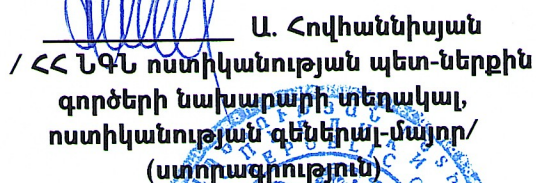 Ա. Հովհաննիսյան
/ ՀՀ ՆԳՆ ոստիկանության պետ-ներքին
գործերի նախարարի տեղակալ,
ոստիկանության գեներալ-մայոր/
(ստորագրություն)
REPUBLIC